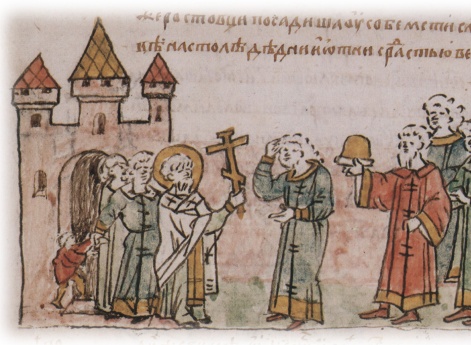 же ростовци посадиша оу собе мстисл
на столѣ дѣдни и ѿтни с растью ве